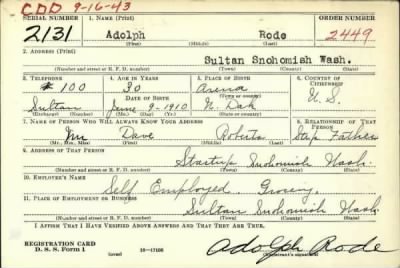 CDD 9-16-43
SERIAL NUMBER 1. NAME (Print) ORDER NUMBER
2131 Adolph Rode 2449
(First) (Middle) (Last)
2. ADDRESS (Print)
Sultan Snohomish Wash.
(Number and street or R. F. D. number) (Town) (County) (State)
3. TELEPHONE 4. AGE IN YEARS 5. PLACE OF BIRTH 6. COUNTRY OF CITIZENSHIP
# 100 30 Arena
DATE OF BIRTH (Town or county)
Sultan June 9-1910 N. Dak U. S.
(Exchange) (Number) (Mo.) (Day) (Yr.) (State or country)
7. NAME OF PERSON WHO WILL ALWAYS KNOW YOUR ADDRESS 8. RELATIONSHIP OF THAT PERSON
Mr Dave Roberts Step Father
(Mr., Mrs., Miss) (First) (Middle) (Last)
9. ADDRESS OF THAT PERSON
Startup Snohomish Wash.
(Number and street or R. F. D. number) (Town) (County) (State)
10. EMPLOYER'S NAME
Self Employed. Grocery.
11. PLACE OF EMPLOYMENT OR BUSINESS
Sultan Snohomish Wash.
(Number and street or R. F. D. number) (Town) (County) (State)
I AFFIRM THAT I HAVE VERIFIED ABOVE ANSWERS AND THAT THEY ARE TRUE.
REGISTRATION CARD
D. S. S. Form 1 (over) 16-17105 Adolph Rode
(Registrant's signature)